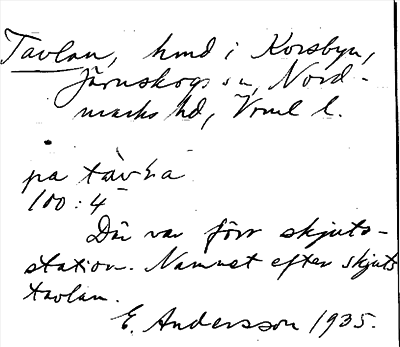 Tavlan, hmd i Korsbyn,
Järnskogs sn, Nord-
marks hd, Vrml l.
på tàvɫa
100:4
Där var förr skjuts-
station. Namnet efter skjuts
tavlan.
E. Andersson 1935.